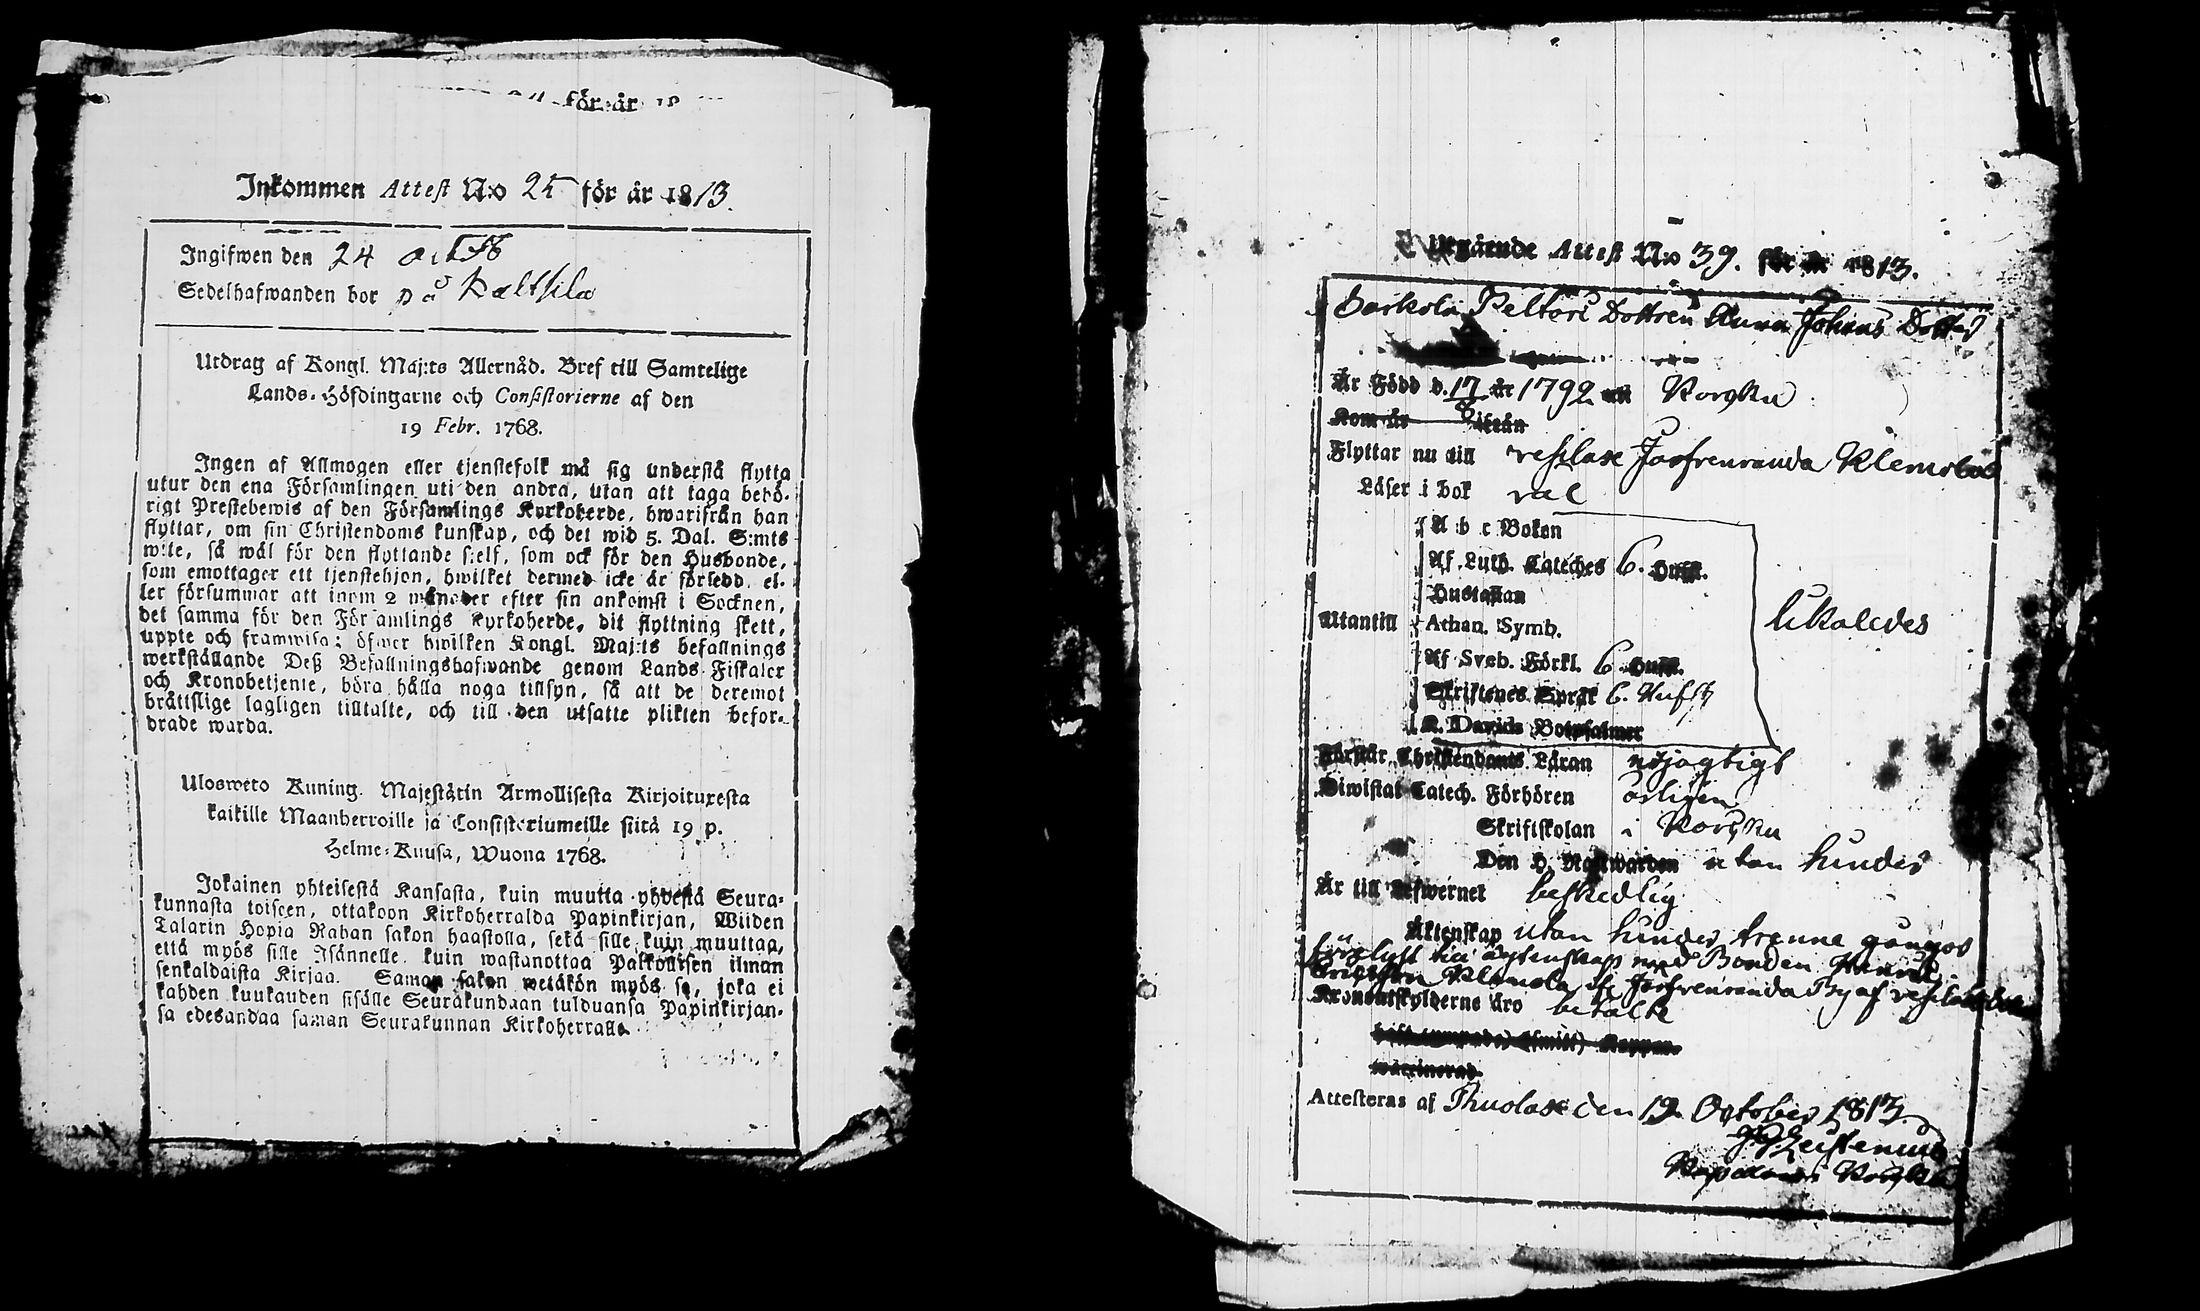 för år 18
Inkommen Attest N:o 25 för år 1813.
Ingifwen den 24 octb
Sedelhafwanden bor på Kaltsila
Utdrag af Kongl. Maj:ts Allernåd. Bref till Samtelige
Lands-Höfdingarne och Consistorierne af den
19 Febr. 1768.
Ingen af Allmogen eller tjenstefolk må sig understå flytta
utur den ena Församlingen uti den andra, utan att taga behö-
rigt Prestebewis af den Församlings Kyrkoherde, hwarifrån han
flyttar, om sin Christendoms kunskap, och det wid 5. Dal. S:mts
wite, så wäl för den flyttande sjelf, som ock för den Husbonde,
som emottager ett tjenstehjon, hwilket dermed icke är försedd, el-
ler försummar att inom 2 månader efter sin ankomst i Socknen,
det samma för den Församlings Kyrkoherde, dit flyttning skett,
uppte och framwisa; öfwer hwilken Kongl. Maj:ts befallnings
werkställande Deß Befallningshafwande genom Lands-Fiskaler
och Kronobetjente, böra hålla noga tillsyn, så att de deremot
bråttslige lagligen tilltalte, och till den utsatte plikten befor-
drade warda.
Ulosweto Kuning. Majestätin Armollisesta Kirjoituxesta
kaikille Maanherroille ja Consistoriumeille siitä 19 p.
Helme-Kuusa, Wuona 1768.
Jokainen yhteisestä Kansasta, kuin muutta yhdestä Seura-
kunnasta toiseen, ottakoon Kirkoherralda Papinkirjan, Wiiden
Talarin Hopia Rahan sakon haastolla, sekä sille kuin muuttaa,
että myös sille Isännelle, kuin wastanottaa Palkollisen ilman
senkaldaista Kirjaa. Saman sakon wetäkön myös se, joka ei
kahden kuukauden sisälle Seurakundaan tulduansa Papinkirjan-
sa edesandaa saman Seurakunnan Kirkoherralle.
Utgående Attest N:o 39. för år 1813.
Sarkola Peltari Dottren Anna Johans Dotter
Är Född d. 17/8 år 1792 uti Korpku
Kom år ifrån
Flyttar nu till Vesilax Jarfvenranda Klemola
Läser i bok väl
A b c Boken
Af Luth. Cateches 6. Huft.
Hustaflan
Utantill Athan. Symb.
Af Sveb. Förkl. 6 Huft.
Skriftenes Språk 6. Hufst
K. Davids Botpsalmer
likaledes
Förstår Christendoms Läran nöjagtigt
Biwistat Catech. Förhören årligen
Skriftskolan i Korpku
Den H. Nattwarden utan hinder
Är till Lefwernet beskedlig
Äktenskap utan hinder, trenne gånger
lyst till äktenskap med Bonden Henric
Ericsson Klemola ifr Jarfvenranda By af Vesilax
Kronoutskylderne äro betalte
haft (ympade) (smitt) Koppor
waccinerad
Attesteras af Thuolax den 19 October 1813
Kapellan i Korpku